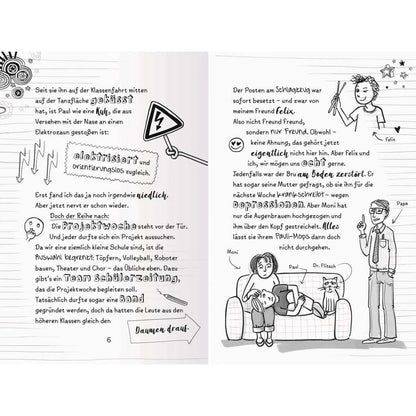 Seit sie ihn auf der Klassenfahrt mitten
auf der Tanzfläche geküsst
hat, ist Paul wie eine Kuh, die aus
Versehen mit der Nase an einen
Elektrozaun gestoßen ist:
elektrisiert und
orientierungslos zugleich.
Erst fand ich das ja noch irgendwie niedlich.
Aber jetzt nervt er schon wieder.
Doch der Reihe nach:
Die Projektwoche steht vor der Tür.
Und jeder durfte sich ein Projekt aussuchen.
Da wir eine ziemlich kleine Schule sind, ist die
Auswahl begrenzt: Töpfern, Volleyball, Roboter
bauen, Theater und Chor – das Übliche eben. Dazu
gibt's ein Team Schülerzeitung,
das die Projektwoche begleiten soll.
Tatsächlich durfte sogar eine Band
gegründet werden, doch da hatten die Leute aus den
höheren Klassen gleich den
Daumen drauf.
6
Der Posten am Schlagzeug war
sofort besetzt – und zwar von
meinem Freund Felix.
Also nicht Freund Freund,
sondern nur Freund. Obwohl –
keine Ahnung, das gehört jetzt
eigentlich nicht hier hin. Aber Felix und
ich, wir mögen uns echt gerne.
Jedenfalls war der Bru am Boden zerstört. Er
hat sogar seine Mutter gefragt, ob sie ihn für die
nächste Woche krankschreibt – wegen
Depressionen. Aber Moni hat
nur die Augenbrauen hochgezogen und
ihm über den Kopf gestreichelt. Alles
lässt sie ihrem Pauli-Mops dann doch
nicht durchgehen.
Felix
Papa
Moni
Paul
Dr. Flitsch